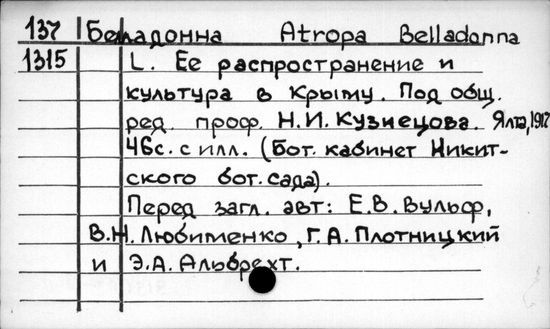 137 Белладонна Atropa Belladonna
1315 L. Ее распространение и
культура в Крыму. Под общ.
ред. проф. Н.И. Кузнецова. Ялта, 1917
46с. с илл. (Бот. кабинет Никит-
ского бот. сада).
Перед загл. авт: Е.В. Вульф,
В.Н. Любименко, Г.А. Плотницкий
и Э.А. Альбрехт.